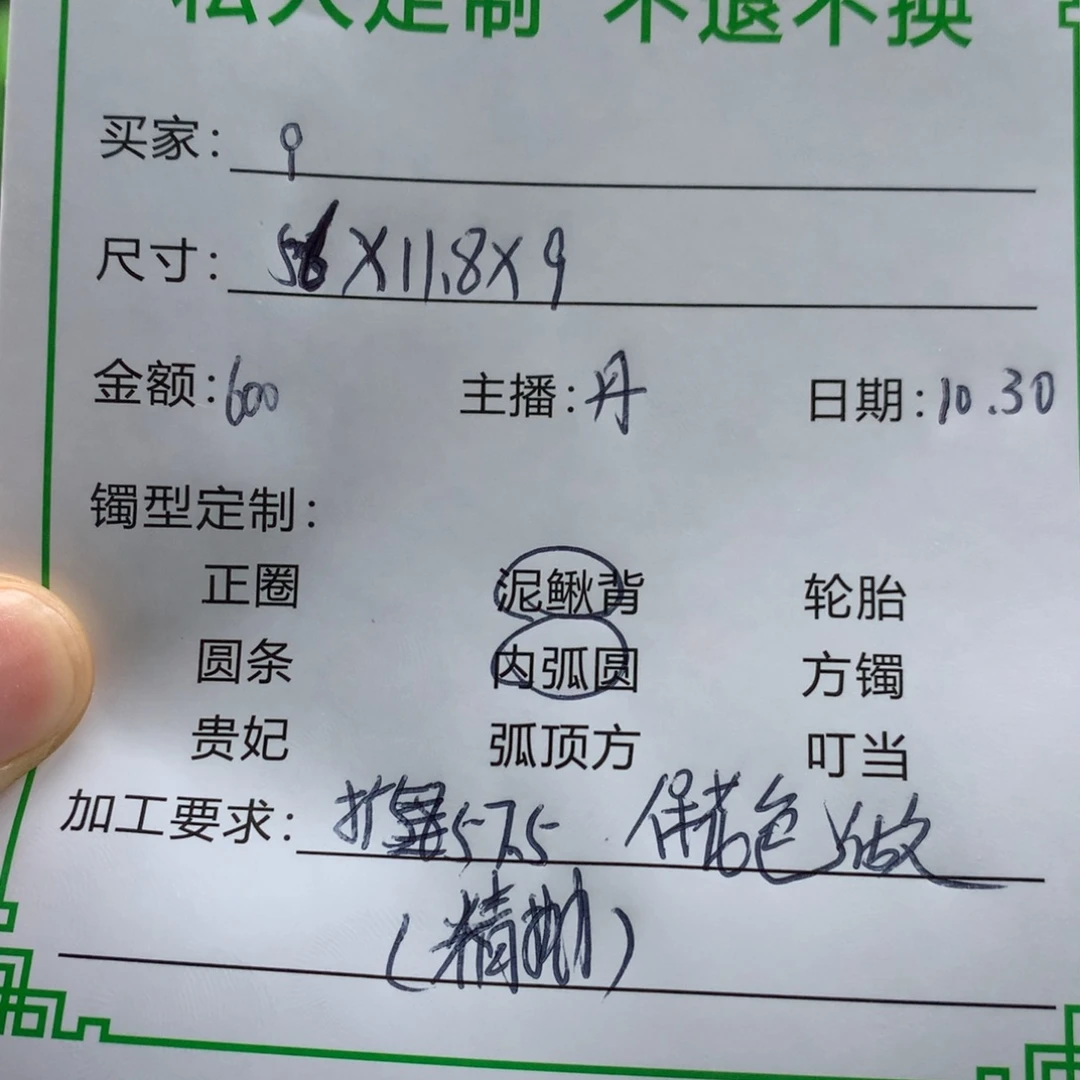 私人定制 不退不换
买家：
尺寸：56×11.8×9
金额：600 主播：丹 日期：10.30
镯型定制：
正圈 泥鳅背 轮胎
圆条 内弧圆 方镯
贵妃 弧顶方 叮当
加工要求：扩 57.5 保 色 做
（精抛）